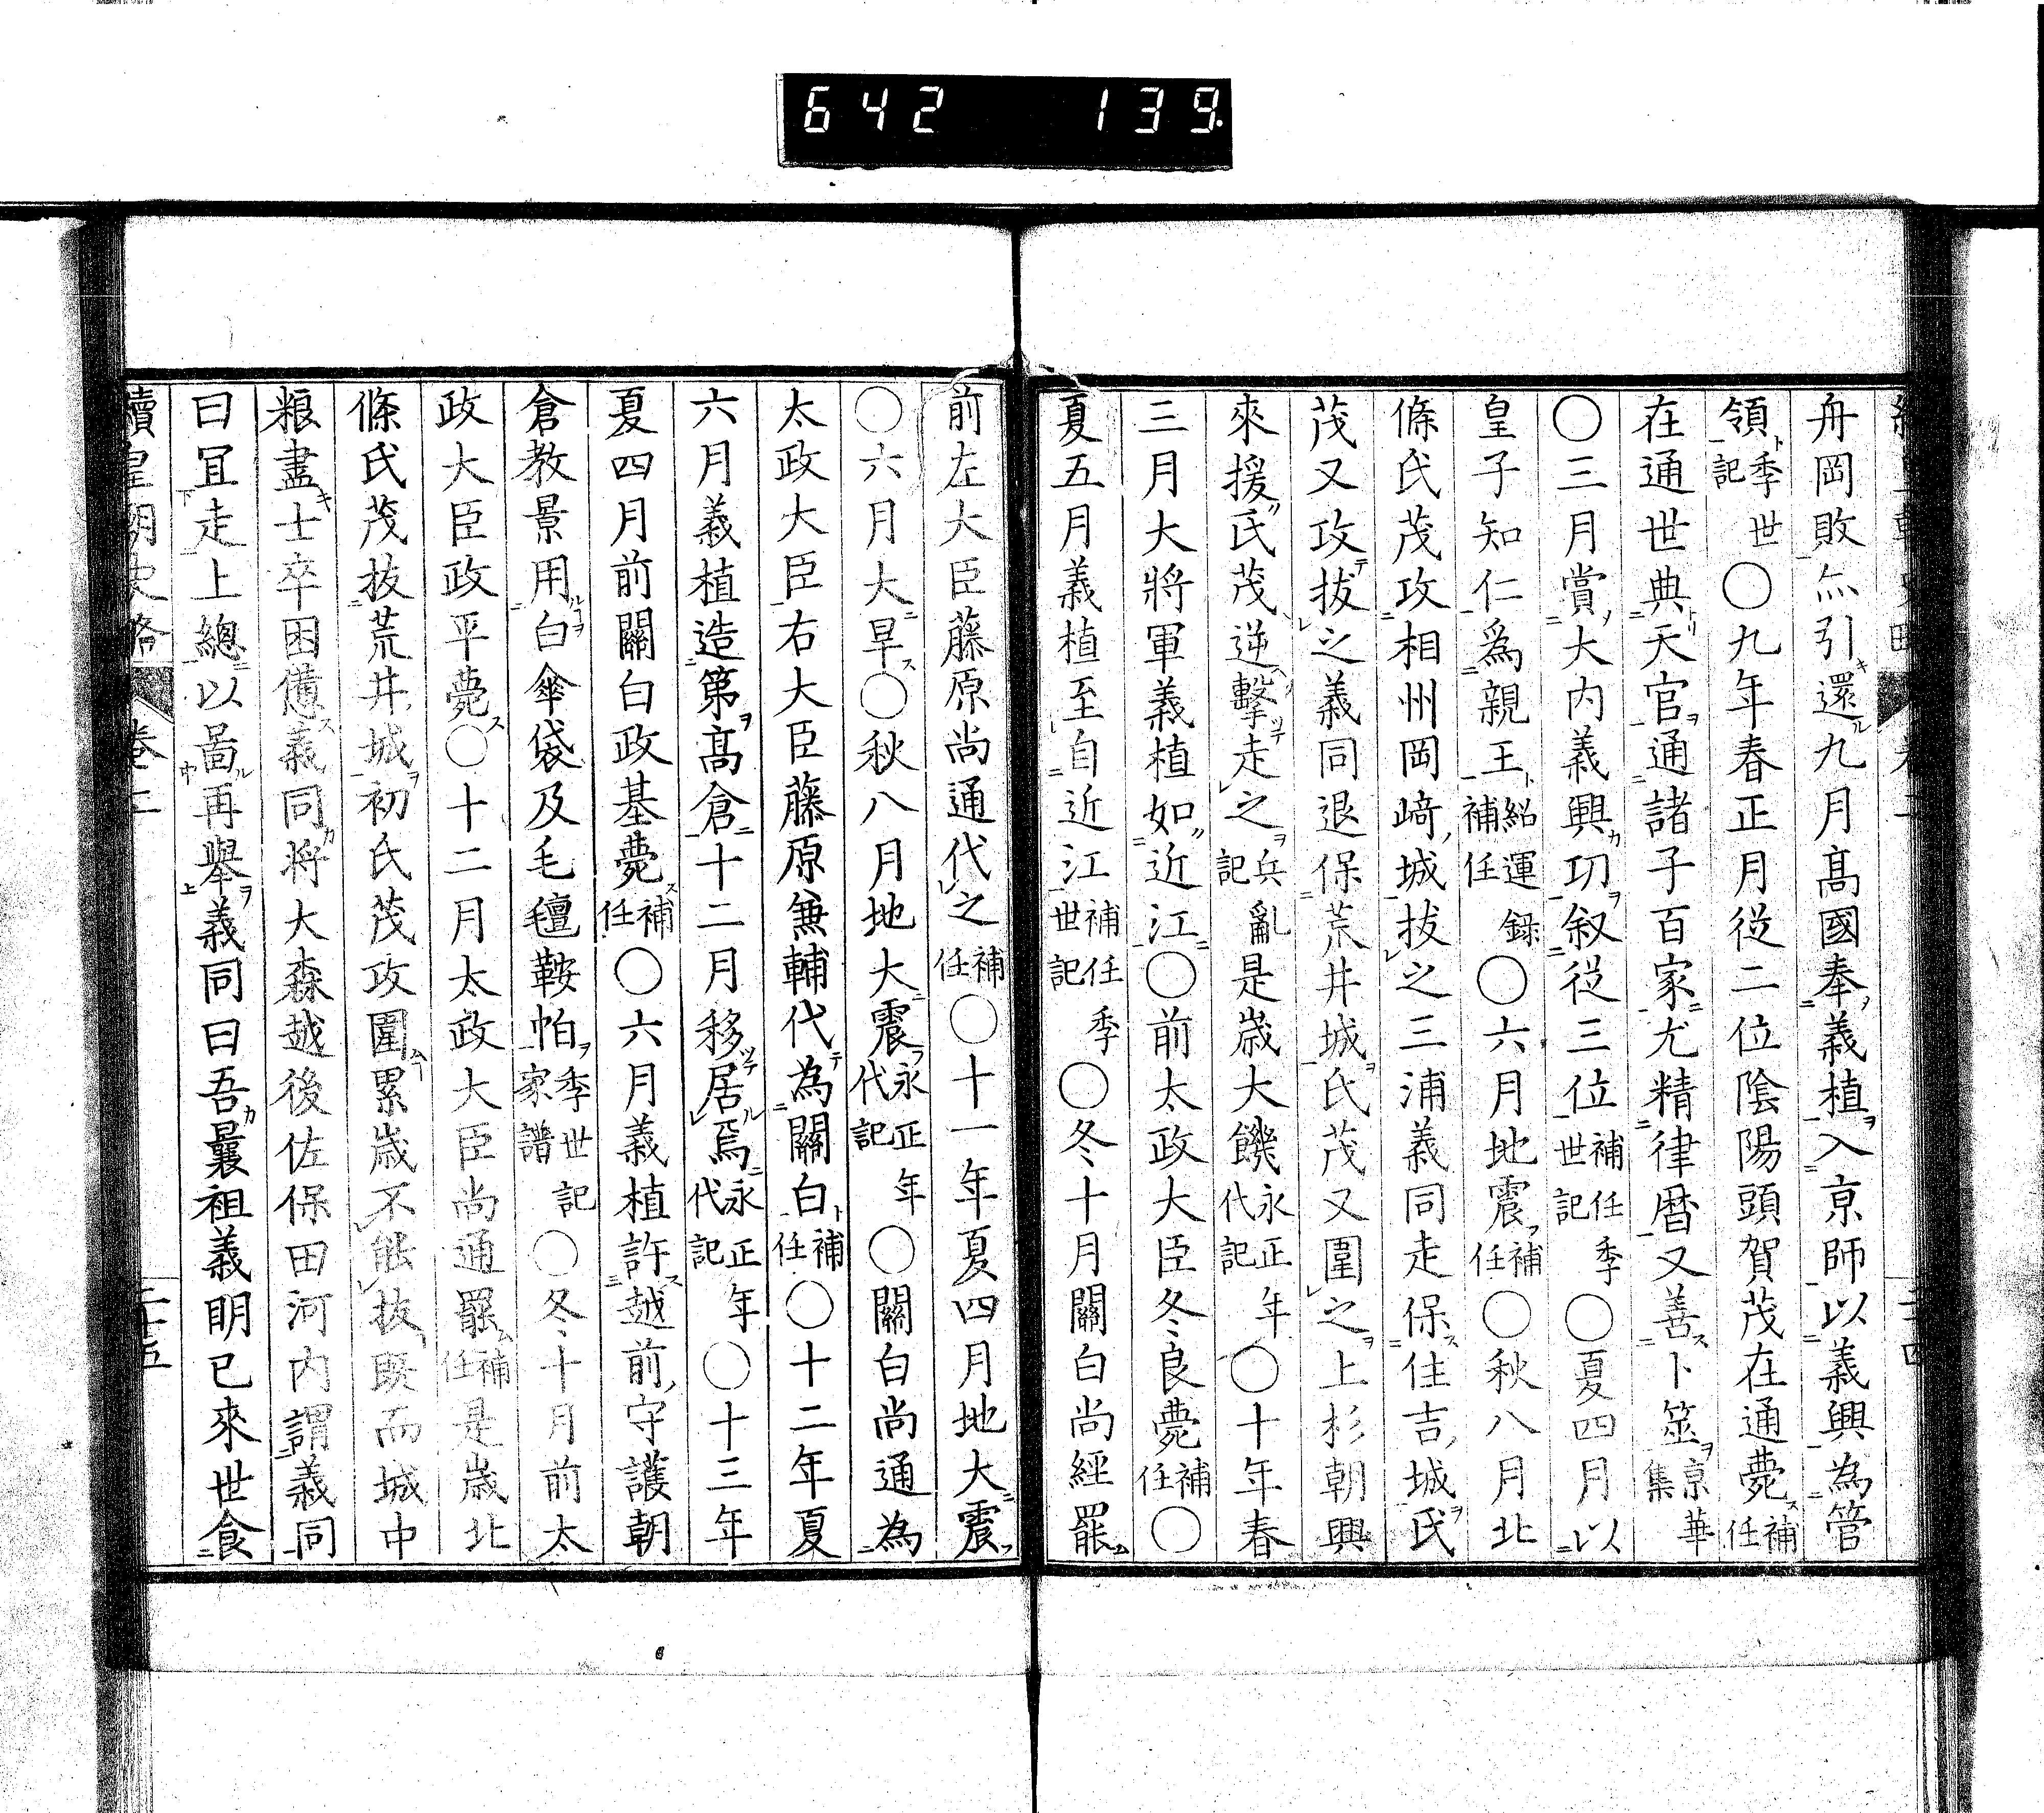 642 139
舟岡敗亦引還九月髙國奉義植入京師以義興為管
領季世記〇九年春正月從二位陰陽頭賀茂在通薨補任
在通世典天官通諸子百家尤精律暦又善卜筮京華集
〇三月賞大内義興功叙從三位補任季世記〇夏四月以
皇子知仁爲親王紹運録補任〇六月地震補任〇秋八月北
條氏茂攻相州岡﨑城拔之三浦義同走保住吉城氏
茂又攻拔之義同退保荒井城氏茂又圍之上杉朝興
來援氏茂逆擊走之兵亂記是歳大饑永正年代記〇十年春
三月大將軍義植如近江〇前太政大臣冬良薨補任〇
夏五月義植至自近江補任季世記〇冬十月關白尚經罷
前左大臣藤原尚通代之補任〇十一年夏四月地大震
〇六月大旱〇秋八月地大震永正年代記〇關白尚通為
太政大臣右大臣藤原兼輔代為關白補任〇十二年夏
六月義植造第髙倉十二月移居焉永正年代記〇十三年
夏四月前關白政基薨補任〇六月義植許越前守護朝
倉教景用白傘袋及毛氊鞍帕季世記家譜〇冬十月前太
政大臣政平薨〇十二月太政大臣尚通罷補任是歳北
條氏茂拔荒井城初氏茂攻圍累歳不能拔既而城中
粮盡士卒困憊義同將大森越後佐保田河内謂義同
曰冝走上總以圖再舉義同曰吾曩祖義明已來世食
續皇朝史略 卷二 二十五